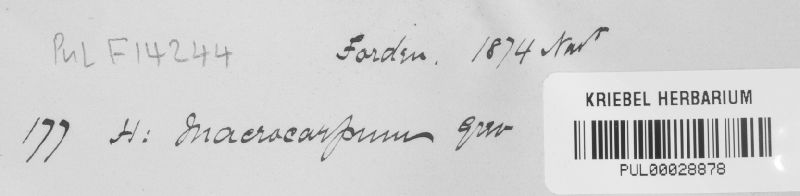 PUL F14244 Forden. 1874
KRIEBEL HERBARIUM
177 H: Macrocarpum Grev
PUL00028878